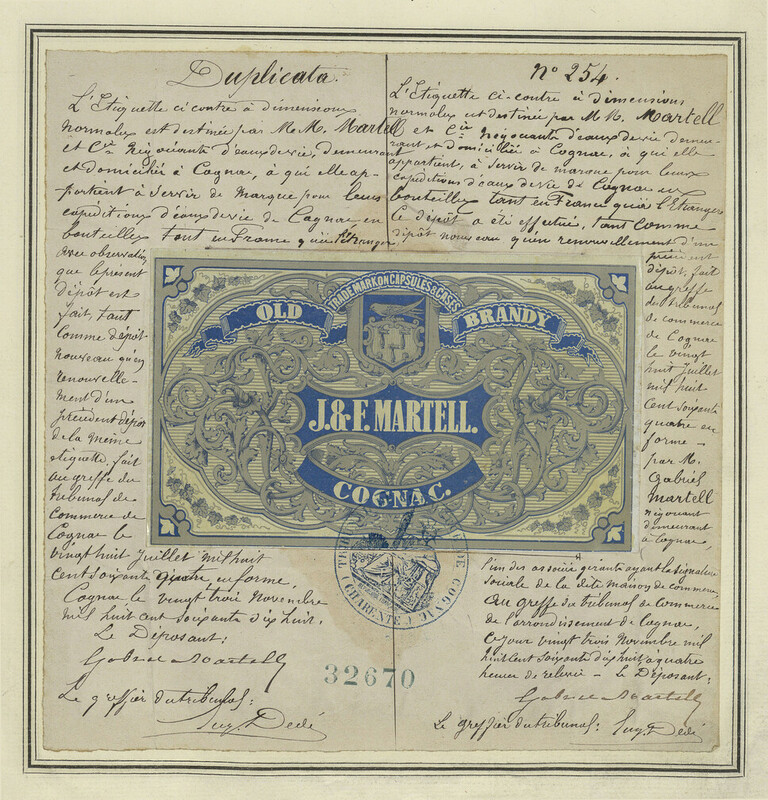 Duplicata.
L'Etiquette ci contre à dimensions
normales est destinée par M.M. Martell
et Cie Négociants d'eaux de vie, demeurant
et domiciliés à Cognac, à qui elle ap-
partient à servir de marque pour leurs
expéditions d'eaux de vie de Cognac en
bouteilles tant en France qu'à l'étranger
avec observation
que le présent
dépôt est
fait, tant
comme dépôt
nouveau qu'en
renouvelle-
ment d'un
précédent dépôt
de la même
étiquette, fait
au greffe du
tribunal de
Commerce de
Cognac le
vingt huit Juillet mil huit
cent soixante quatre en forme
Cognac le vingt trois Novembre
mil huit cent soixante dix huit.
Le Déposant:
Gabriel Martell
Le greffier du tribunal:
Dedé
No 254.
L'Etiquette ci-contre à dimensions
normales est destinée par M.M. Martell
et Cie Négociants d'eaux de vie demeu-
rant et domiciliés à Cognac, à qui elle
appartient, à servir de marque pour leurs
expéditions d'eaux de vie de Cognac en
bouteilles tant en France qu'à l'Etranger
le dépôt a été effectué, tant comme
dépôt nouveau qu'en renouvellement d'un
précédent
dépôt, fait
au greffe
du tribunal
de commerce
de Cognac
le vingt
huit Juillet
mil huit
Cent soixante
quatre en
forme
par M.
Gabriel
Martell
négociant
demeurant
à Cognac,
l'un des associés gérants ayant la signature
sociale de la dite maison de commerce,
au greffe du tribunal de Commerce
de l'arrondissement de Cognac,
ce jour vingt trois Novembre mil
huit cent soixante dix huit à quatre
heures de relevée - le Déposant:
Gabriel Martell
Le greffier du tribunal: Dedé
TRADE MARK ON CAPSULES & CASES
OLD BRANDY
J. & F. MARTELL.
COGNAC.
DE COGNAC
CHARENTE
32670